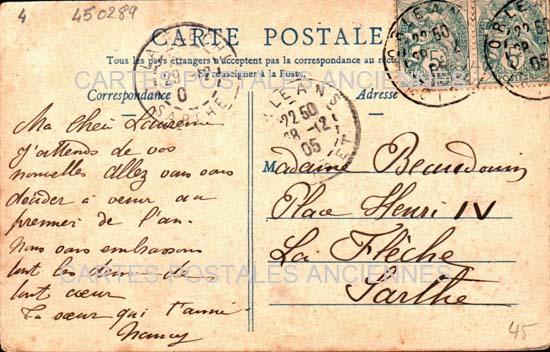 4 450289
CARTE POSTALE
Tous les pays étrangers n'acceptent pas la correspondance au recto
(Se renseigner à la Poste)
Correspondance
Adresse
CARTES POSTALES ANCIENNES
LA FLÈCHE
29
SARTHE
ORLEANS
22 50
28 -12
05
LOIRET
ORLEANS
22 50
28
05
ORLE
22 50
28
05
Ma Chère Laurence
J'attends de vos
nouvelles Allez vous vous
décider a venir au
premier de l'an.
Nous vous embrassons
tout les deux de
tout cœur
Ta sœur qui t'aime
Nancy
Madame Beaudouin
Place Henri IV
La Flèche
Sarthe
CARTES POSTALES ANCIENNES
45